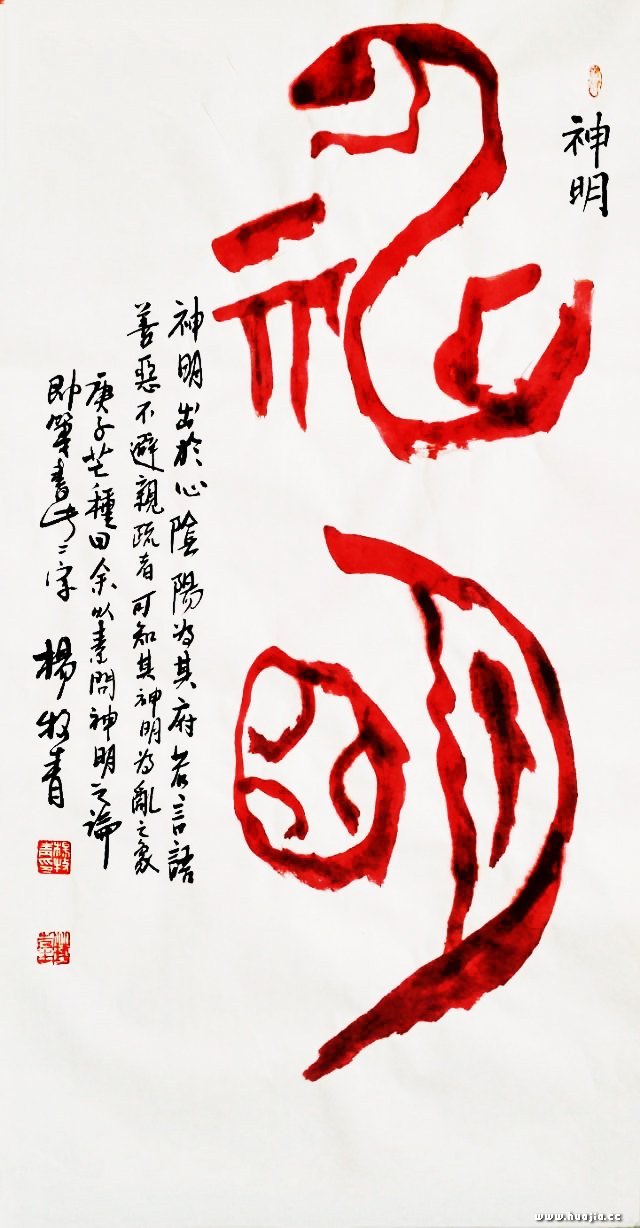 神明
神明
神明出於心陰陽为其府若言語
善惡不避親疏者可知其神明为亂之象
庚子芒種日余以素問神明之論
即筆書此二字 楊牧青
楊牧青印
www.huajia.cc